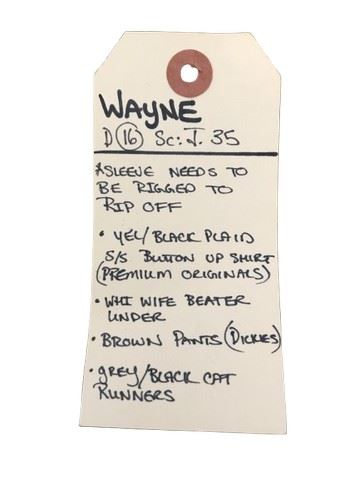 WAYNE
D 16 Sc: J. 35
*SLEEVE NEEDS TO
BE RIGGED TO
RIP OFF
• YEL/BLACK PLAID
S/S BUTTON UP SHIRT
(PREMIUM ORIGINALS)
• WHI WIFE BEATER
UNDER
• BROWN PANTS (DICKIES)
• GREY/BLACK CAT
RUNNERS